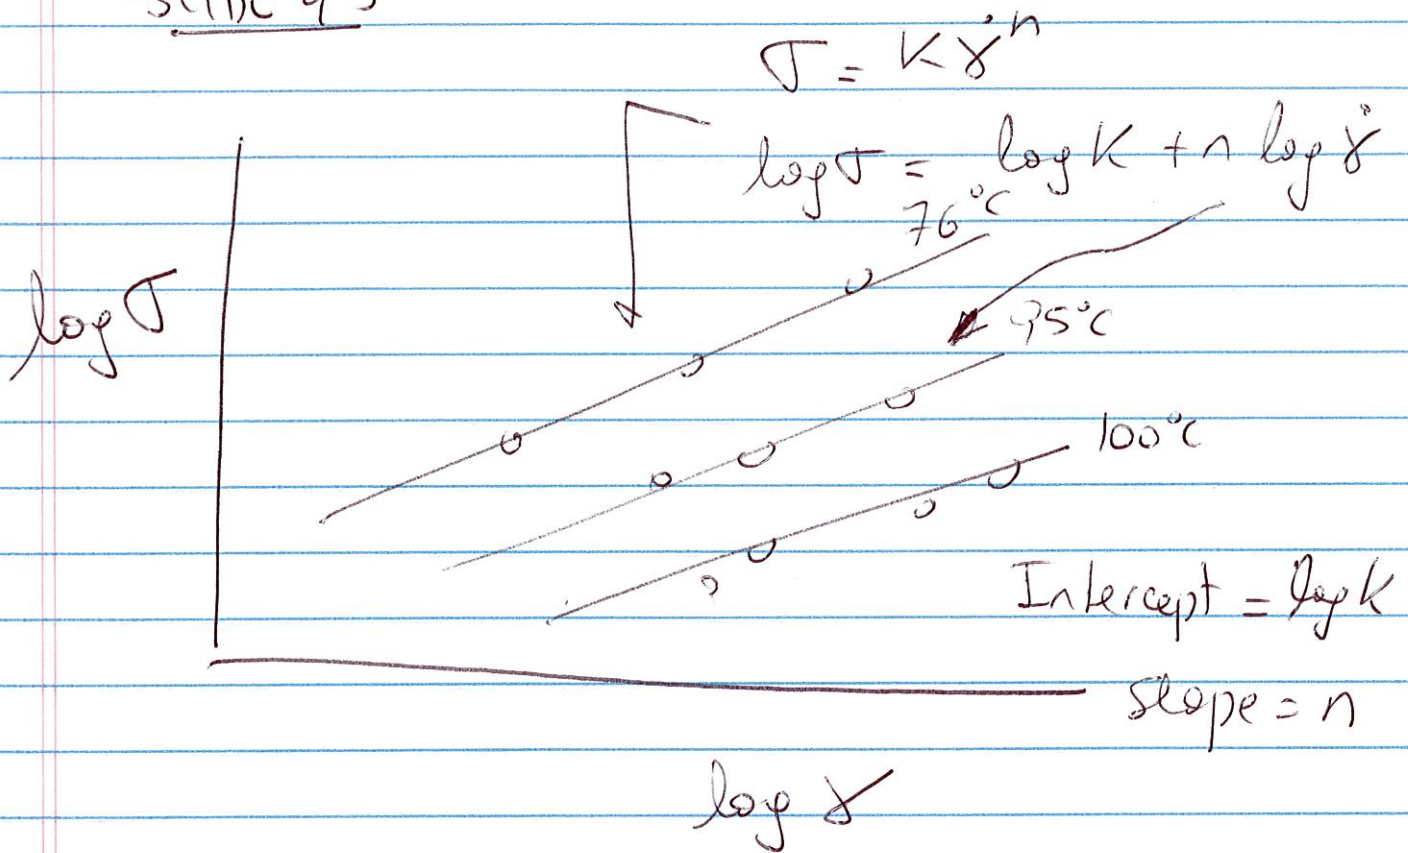 σ = Kγ̇ⁿ
log σ = log K + n log γ̇
76°C
log σ
95°C
100°C
Intercept = log K
slope = n
log γ